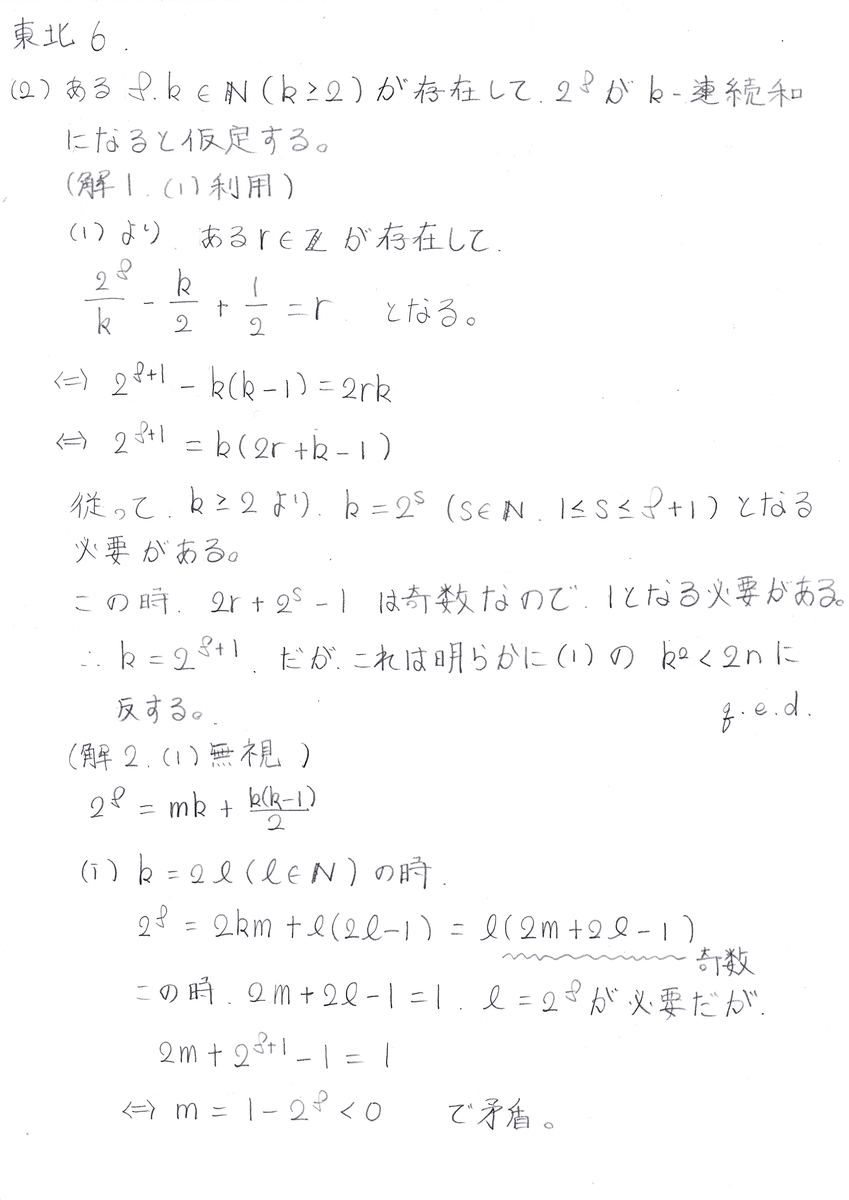 東北6.
(2) ある f.k ∈ ℕ (k≥2) が存在して. 2^f が k-連続和
になると仮定する。
(解1. (1)利用)
(1)より ある r∈ℤ が存在して.
2^f/k - k/2 + 1/2 = r となる。
⇔ 2^{f+1} - k(k-1) = 2rk
⇔ 2^{f+1} = k(2r+k-1)
従って. k≥2より. k=2^s (s∈ℕ. 1≤s≤f+1) となる
必要がある。
この時. 2r+2^s-1 は奇数なので. 1となる必要がある。
∴ k=2^{f+1}. だが. これは明らかに(1)の k²<2nに
反する。. q.e.d.
(解2. (1)無視 )
2^f = mk + k(k-1)/2
(i) k=2ℓ (ℓ∈ℕ) の時.
2^f = 2km + ℓ(2ℓ-1) = ℓ(2m+2ℓ-1)
奇数
この時. 2m+2ℓ-1=1. ℓ=2^f が必要だが.
2m+2^{f+1}-1 = 1
⇔ m = 1-2^f < 0 で矛盾。